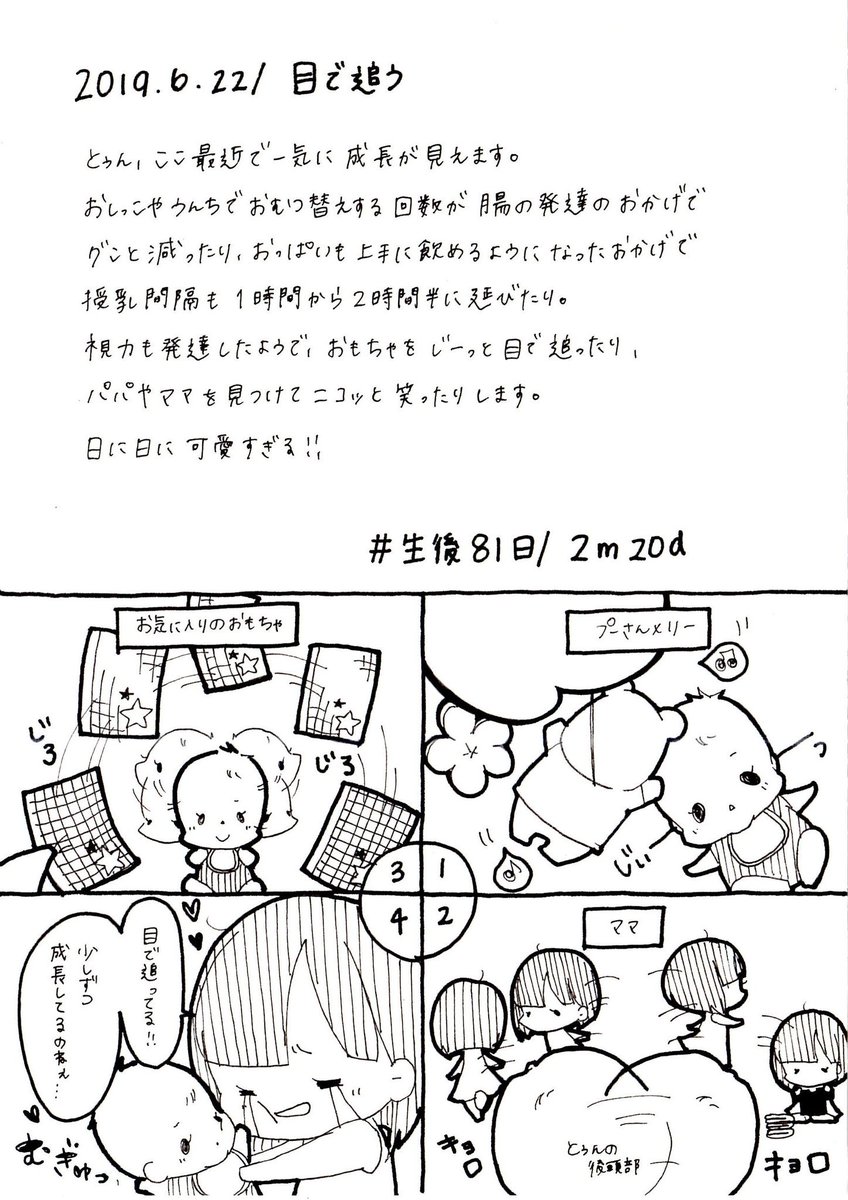 2019.6.22/ 目で追う
とぅん、ここ最近で一気に成長が見えます。
おしっこやうんちでおむつ替えする回数が腸の発達のおかげで
グンと減ったり、おっぱいも上手に飲めるようになったおかげで
授乳間隔も1時間から2時間半に延びたり。
視力も発達したようで、おもちゃをじーっと目で追ったり、
パパやママを見つけてニコッと笑ったりします。
日に日に可愛すぎる!!
#生後81日/ 2m20d
プーさんメリー
じぃ
っ
1
ママ
キョロ
とぅんの
後頭部
キョロ
2
お気に入りのおもちゃ
じろ
じろ
3
目で追ってる!!
少しずつ
成長してるのねぇ…
むぎゅっ
4